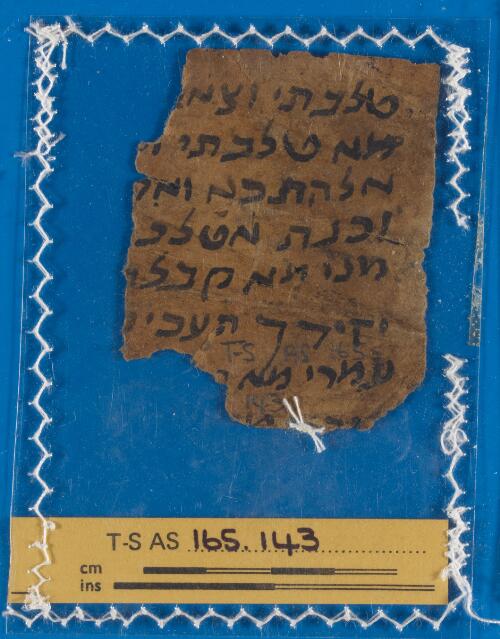 טלבתי וצא
מא טלבתי
אלהתכא ומ
וכנת אטלב
מני מא קבל
יזידך העבי
עמרי מא
T-S AS 165.143
cm
ins